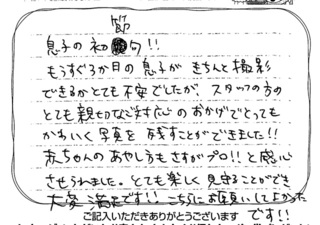 節
息子の初句!!
もうすぐ6か月の息子がきちんと撮影
できるかとても不安でしたが、スタッフの方の
とても親切な対応のおかげでとっても
かわいく写真を残すことができました!!
赤ちゃんのあやし方もさすがプロ!!と感心
させられました。とても楽しく見守ることができ
大変満足です!!こちらにお願いしてよかった
です!!
ご記入いただきありがとうございます